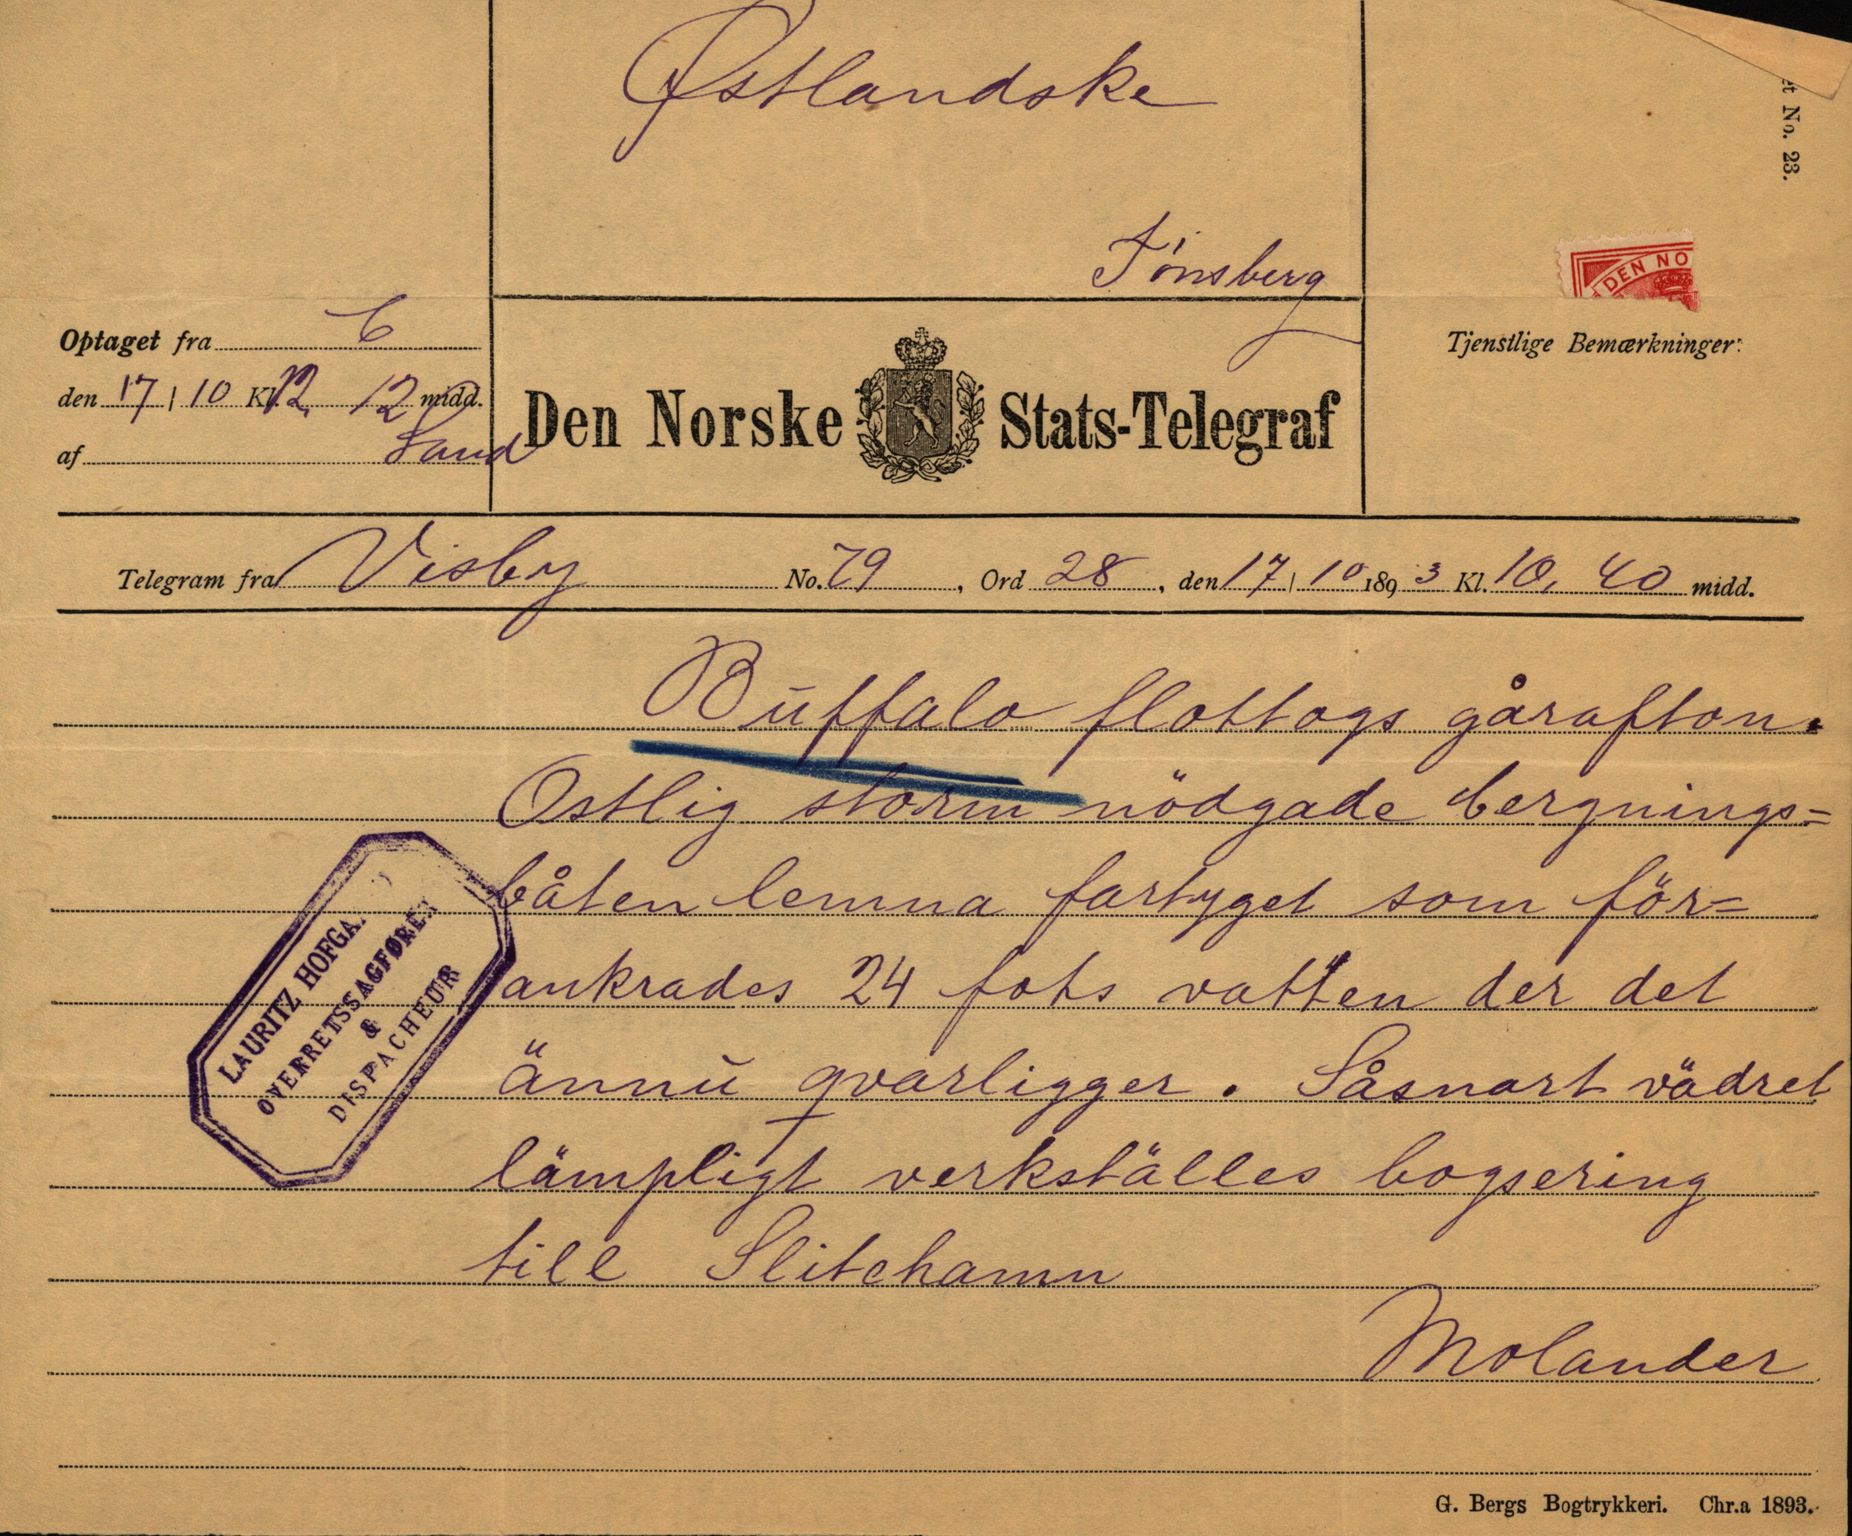 Østlandske
Tønsberg
et No. 23.
DEN NO
Optaget fra C
den 17 / 10 Kl. 12. 12 midd.
af Sand
Den Norske Stats-Telegraf
Tjenstlige Bemærkninger:
Telegram fra Visby No. 79, Ord 28, den 17 / 10 1893 Kl. 10,40 midd.
Buffalo flottogs gårafton.
Ostlig storm nödgade bergnings=
båten lemna fartyget som för=
ankrades 24 fots vatten der det
ännu qvarligger. Såsnart vädret
lämpligt verkställes bogsering
till Slitehamn
Molander
LAURITZ HOFGA.
OVERRETSSAGFØRER
&
DISPACHEUR
G. Bergs Bogtrykkeri. Chr.a 1893.